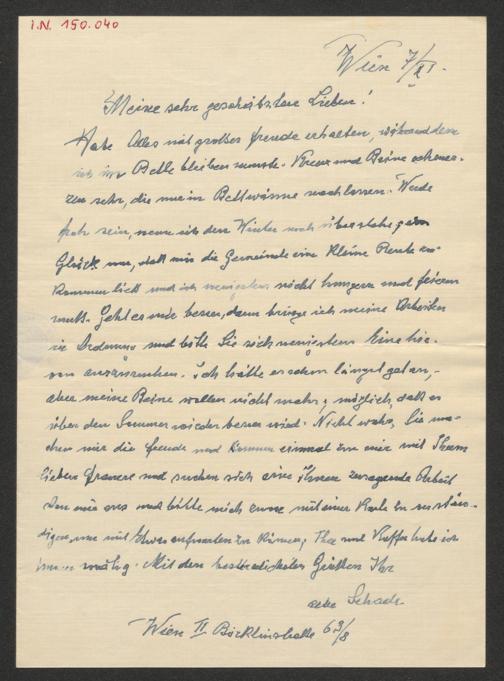 I.N. 150.040
Wien 7/XI.
Meine sehr geschätzten Lieben!
Habe Alles mit großer Freude erhalten, während dem
ich im Bette bleiben musste. Kreuz und Beine schmer-
zen sehr, die nur in Bettwärme nachlassen. Werde
froh sein, wenn ich den Winter noch überstehe; ein
Glück nur, daß mir die Gemeinde eine kleine Rente zu-
kommen ließ und ich wenigstens nicht hungern und frieren
muß. Geht es mir besser, dann bringe ich meine Arbeiten
in Ordnung und bitte Sie sich wenigstens Eine hie-
von auszusuchen. Ich hätte es schon längst getan,-
aber meine Beine wollen nicht mehr; möglich, daß es
über den Sommer wieder besser wird. Nicht wahr, Sie ma-
chen mir die Freude und kommen einmal zu mir mit Ihrem
lieben und suchen sich eine Ihnen zusagende Arbeit
bei mir aus und bitte mich zuvor mit einer Karte zu verstän-
digen, um mit Etwas aufwarten zu können; Thee und Kaffee habe ich
immer vorrätig. Mit den herzlichsten Grüßen Ihr
alter Schach
Wien II Böcklinstraße 63/8